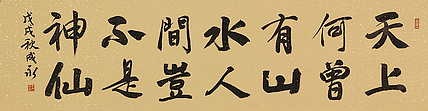 天上
何曾
有山
水人
間豈
不是
神仙
戊戌秋成永